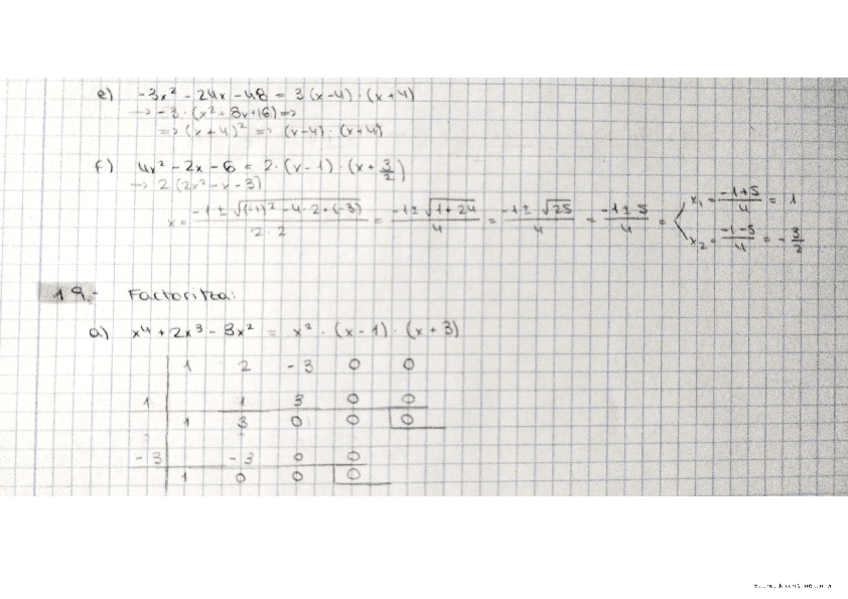 e) -3x² - 24x - 48 = 3(x-4)·(x+4)
→ -3·(x²+8x+16) ⇒
⇒ (x+4)² ⇒ (x-4)·(x+4)
f) 4x² - 2x - 6 = 2·(x-1)·(x+3/2)
→ 2(2x²-x-3)
x = (-1±√((-1)²-4·2·(-3)))/(2·2) = (-1±√(1+24))/4 = (-1±√25)/4 = (-1±5)/4 = x₁ = (-1+5)/4 = 1
x₂ = (-1-5)/4 = -3/2
19.- Factoritza:
a) x⁴ + 2x³ - 3x² = x²·(x-1)·(x+3)
1 2 -3 0 0
1 1 3 0 0
1 3 0 0 0
-3 -3 0 0
1 0 0 0